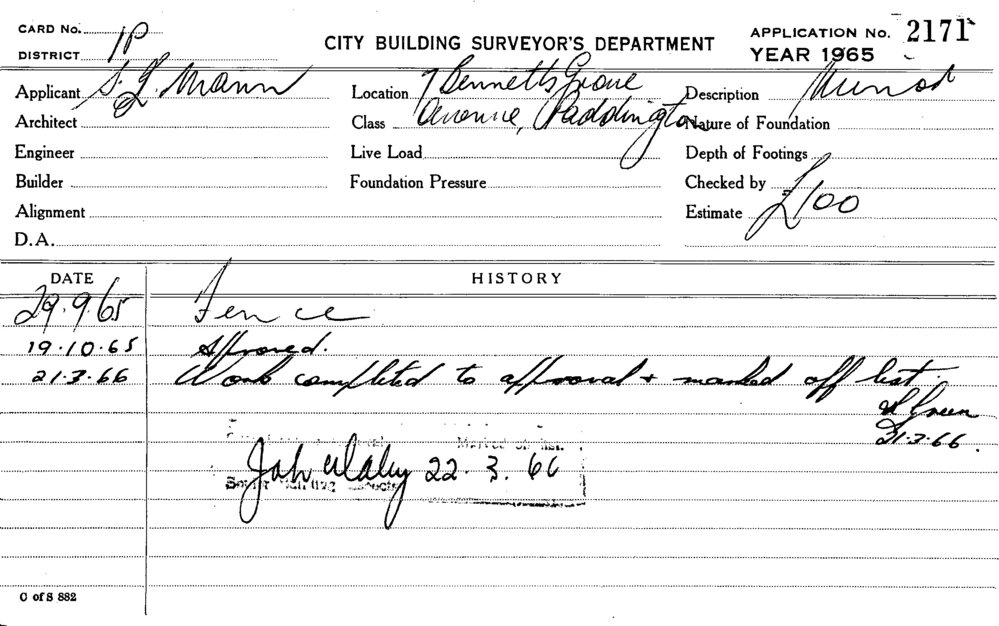 CARD No.
DISTRICT 1P
CITY BUILDING SURVEYOR'S DEPARTMENT
APPLICATION No. 2171
YEAR 1965
Applicant Mann
Location 7 Bennetts Grove
Avenue, Paddington
Description Minor
Architect
Class
Nature of Foundation
Engineer
Live Load
Depth of Footings
Builder
Foundation Pressure
Checked by
Alignment
Estimate £100
D.A.
DATE HISTORY
29.9.65 Fence
19.10.65 Approved.
21.3.66 Work completed to approval + marked off list.
Green
21.3.66.
Marked off list.
22.3.66
C of S 882